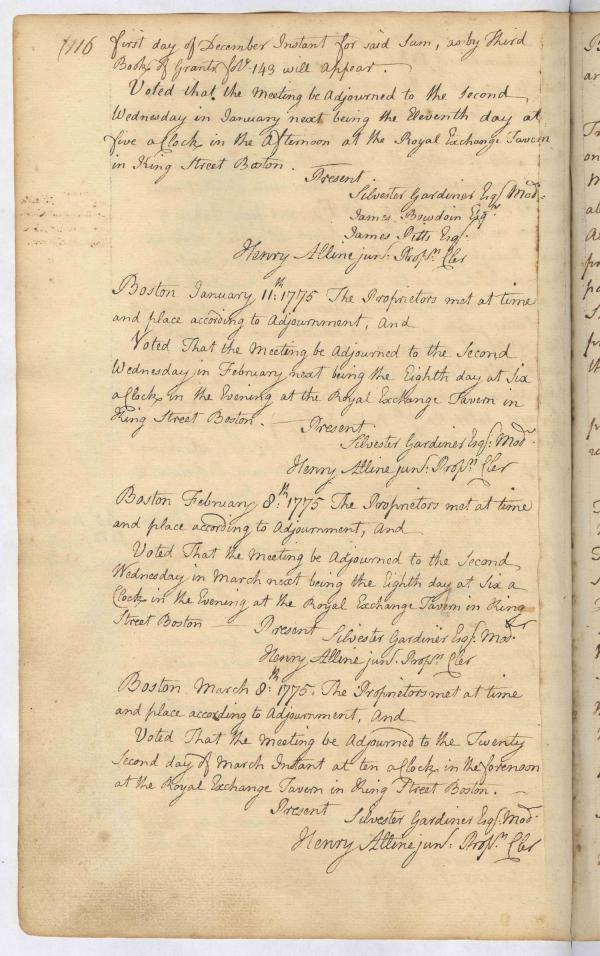 116
first day of December Instant for said Sum, as by third
Book of Grants fol. 143 will appear.
Voted that the Meeting be Adjourned to the Second
Wednesday in January next being the Eleventh day at
five a Clock in the Afternoon at the Royal Exchange Tavern
in King Street Boston.
Present
Silvester Gardiner Esq. Modr.
James Bowdoin Esqr.
James Pitts Esq.
Henry Alline junr. Propr. Cler
Boston January 11th: 1775 The Proprietors met at time
and place according to Adjournment, And
Voted That the Meeting be Adjourned to the Second
Wednesday in February next being the Eighth day at Six
a Clock in the Evening at the Royal Exchange Tavern in
King Street Boston. — Present
Silvester Gardiner Esq: Modr.
Henry Alline junr: Propr. Cler
Boston February 8th: 1775 The Proprietors met at time
and place according to Adjournment, And
Voted That the Meeting be Adjourned to the Second
Wednesday in March next being the Eighth day at Six a
Clock in the Evening at the Royal Exchange Tavern in King
Street Boston — Present
Silvester Gardiner Esq: Modr.
Henry Alline junr. Propr. Cler
Boston March 8th: 1775. The Proprietors met at time
and place according to Adjournment, And
Voted That the Meeting be Adjourned to the Twenty
Second day of March Instant at ten a Clock in the forenoon
at the Royal Exchange Tavern in King Street Boston. —
Present
Silvester Gardiner Esq. Modr.
Henry Alline junr: Propr. Cler